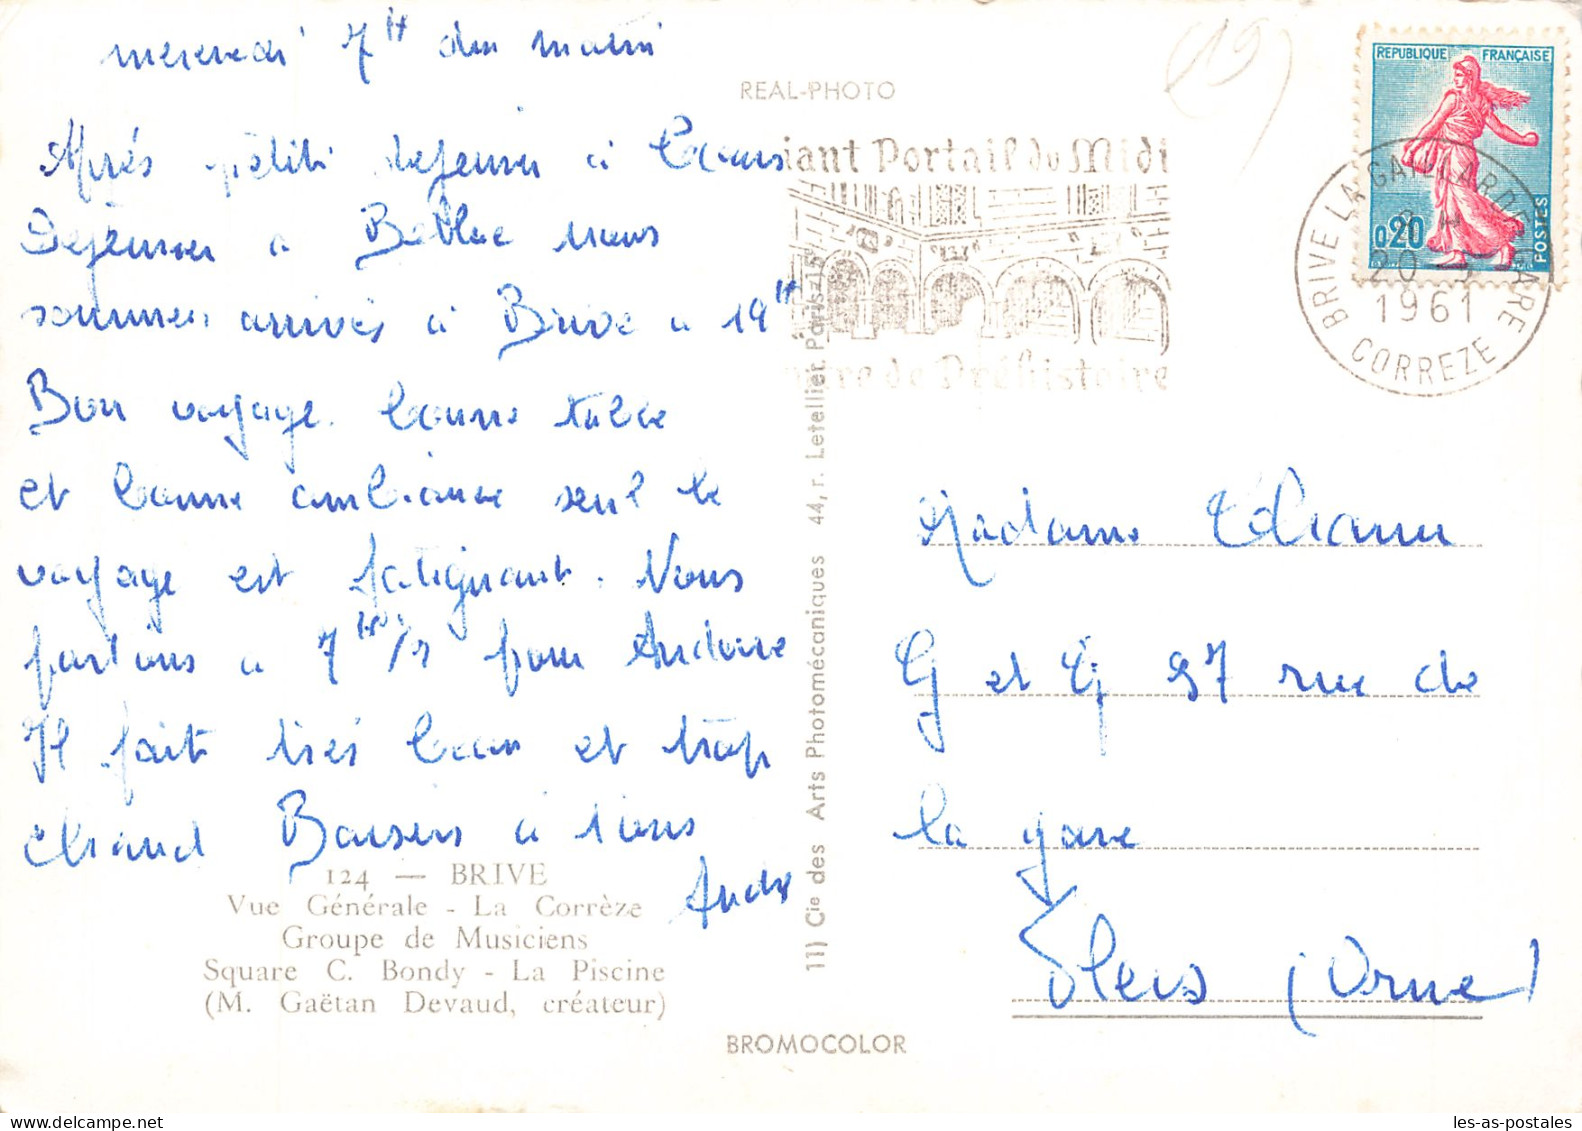 mercredi 7H du matin
Après petit dejeuner à
Dejeuner a Bellac nous
sommes arrivés à Brive a 19H
Bon voyage. bonne table
et bonne ambiance seul le
voyage est fatiguant. Nous
partons a 7H 1/2 pour Andorre
Il fait très beau et trop
chaud Baisers à tous
André
124 — BRIVE
Vue Générale - La Corrèze
Groupe de Musiciens
Square C. Bondy - La Piscine
(M. Gaëtan Devaud, créateur)
REAL-PHOTO
11) Cie des Arts Photomécaniques 44, r. Letellier, Paris-15
BROMOCOLOR
(19)
iant Portail du Midi
de Préhistoire
REPUBLIQUE FRANÇAISE
0,20
POSTES
BRIVE LA GAILLARDE GARE
20
1961
CORREZE
Madame
G et G 97 rue de
la gare
Flers (Orne)
les-as-postales